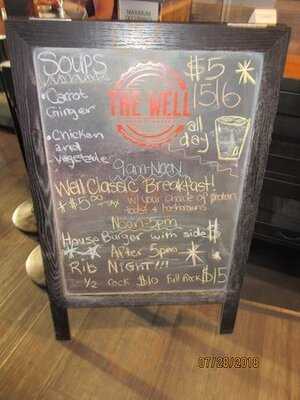 Soups
• Carrot
Ginger
• Chicken
and
vegetable
THE WELL
$5
1516
all
day
9am-Noon
Well Classic Breakfast!
$5.00 w/ your choice of protein
toast & hashbrowns
Noon-5pm
House Burger with side $
After 5pm
Rib NIGHT!!!
1/2 rack $10 Full Rack $15
07/28/2018